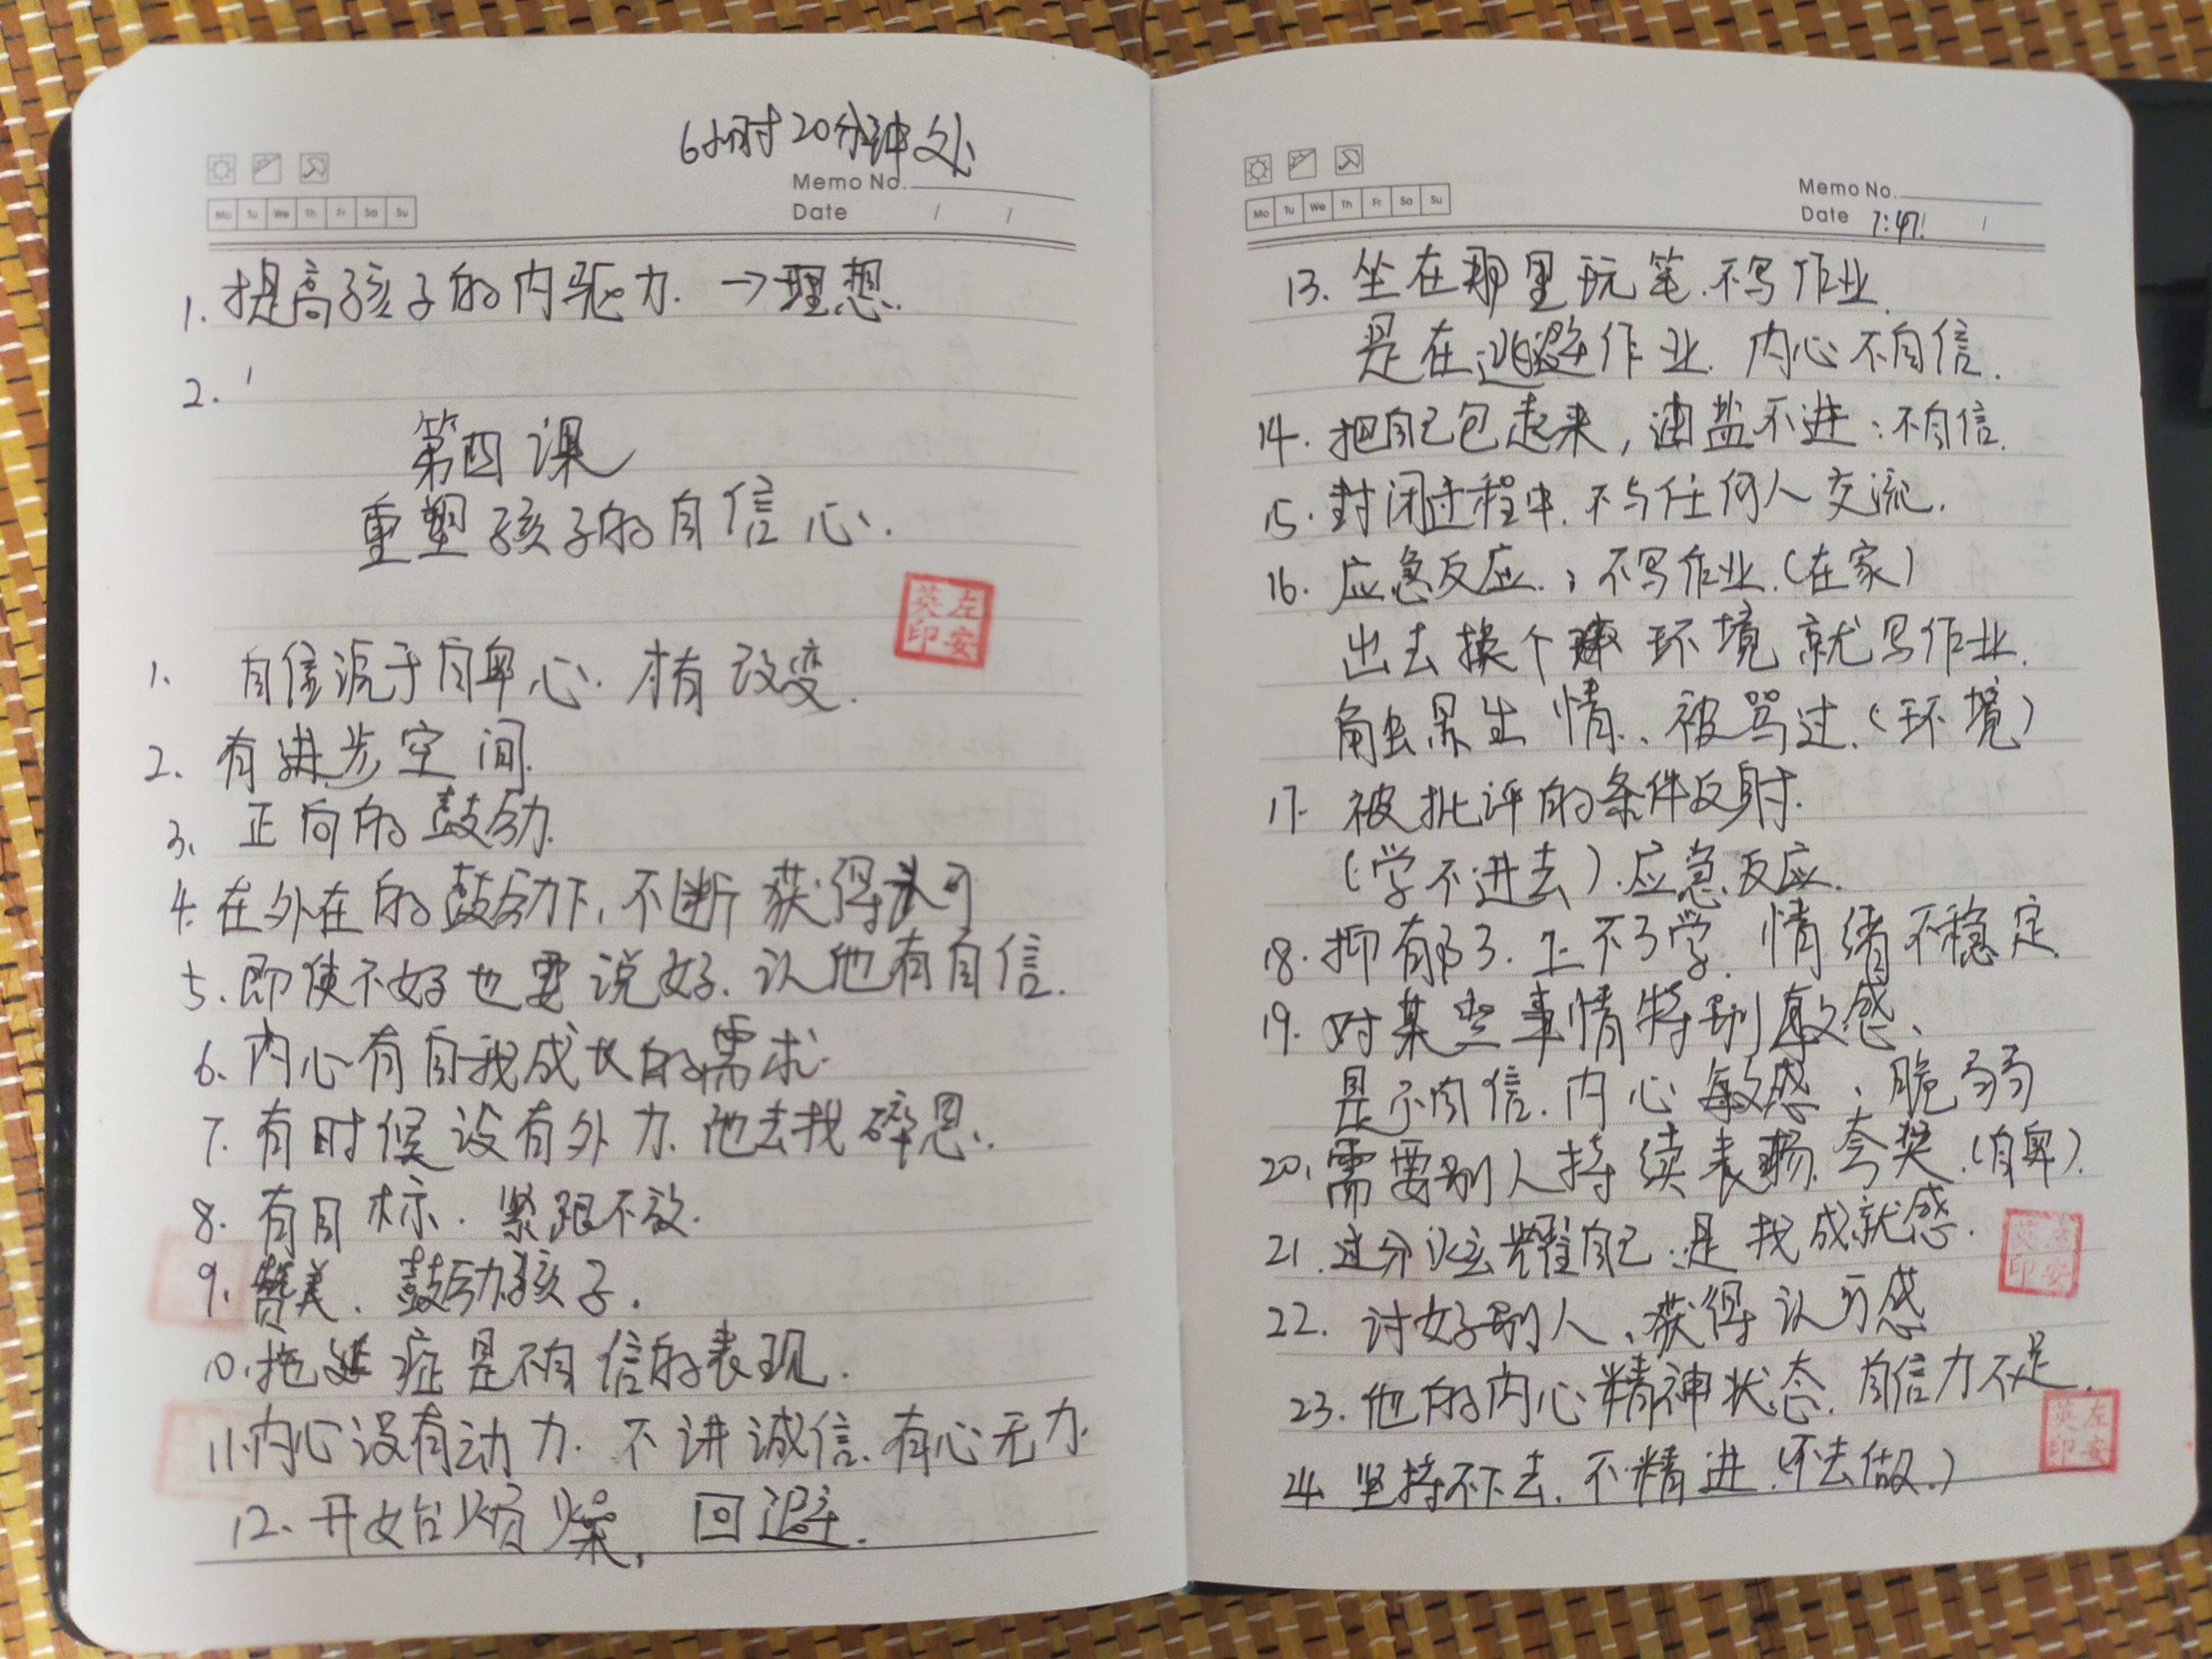 6小时20分钟处
Memo No.
Mo Tu We Th Fr Sa Su
Date / /
1. 提高孩子的内驱力. →理想.
2.
第四课
重塑孩子的自信心.
英左
印安
1. 自信源于自卑心. 才有改变.
2. 有进步空间.
3. 正向的鼓励.
4. 在外在的鼓励下, 不断获得认可
5. 即使不好也要说好. 让他有自信.
6. 内心有自我成长的需求.
7. 有时候没有外力. 他去找
8. 有目标. 紧跟不放.
9. 赞美. 鼓励孩子.
10. 拖延症是不自信的表现.
11. 内心没有动力. 不讲诚信. 有心无力.
12. 开始烦燥, 回避.
Memo No.
Mo Tu We Th Fr Sa Su
Date 7:47! /
13. 坐在那里玩笔. 不写作业.
是在逃避作业. 内心不自信.
14. 把自己包起来, 油盐不进: 不自信.
15. 封闭过程中. 不与任何人交流.
16. 应急反应.; 不写作业. (在家)
出去换个环境就写作业.
触景生情、被骂过. (环境)
17. 被批评的条件反射.
(学不进去). 应急反应.
18. 抑郁了. 上不了学. 情绪不稳定
19. 对某些事情特别敏感、
是不自信. 内心敏感、脆弱
20. 需要别人持续表扬. 夸奖. (自卑).
21. 过分炫耀自己: 是找成就感.
英左
印安
22. 讨好别人、获得认可感
23. 他的内心精神状态. 自信力不足.
英左
印安
24. 坚持不下去. 不精进. (不去做.)